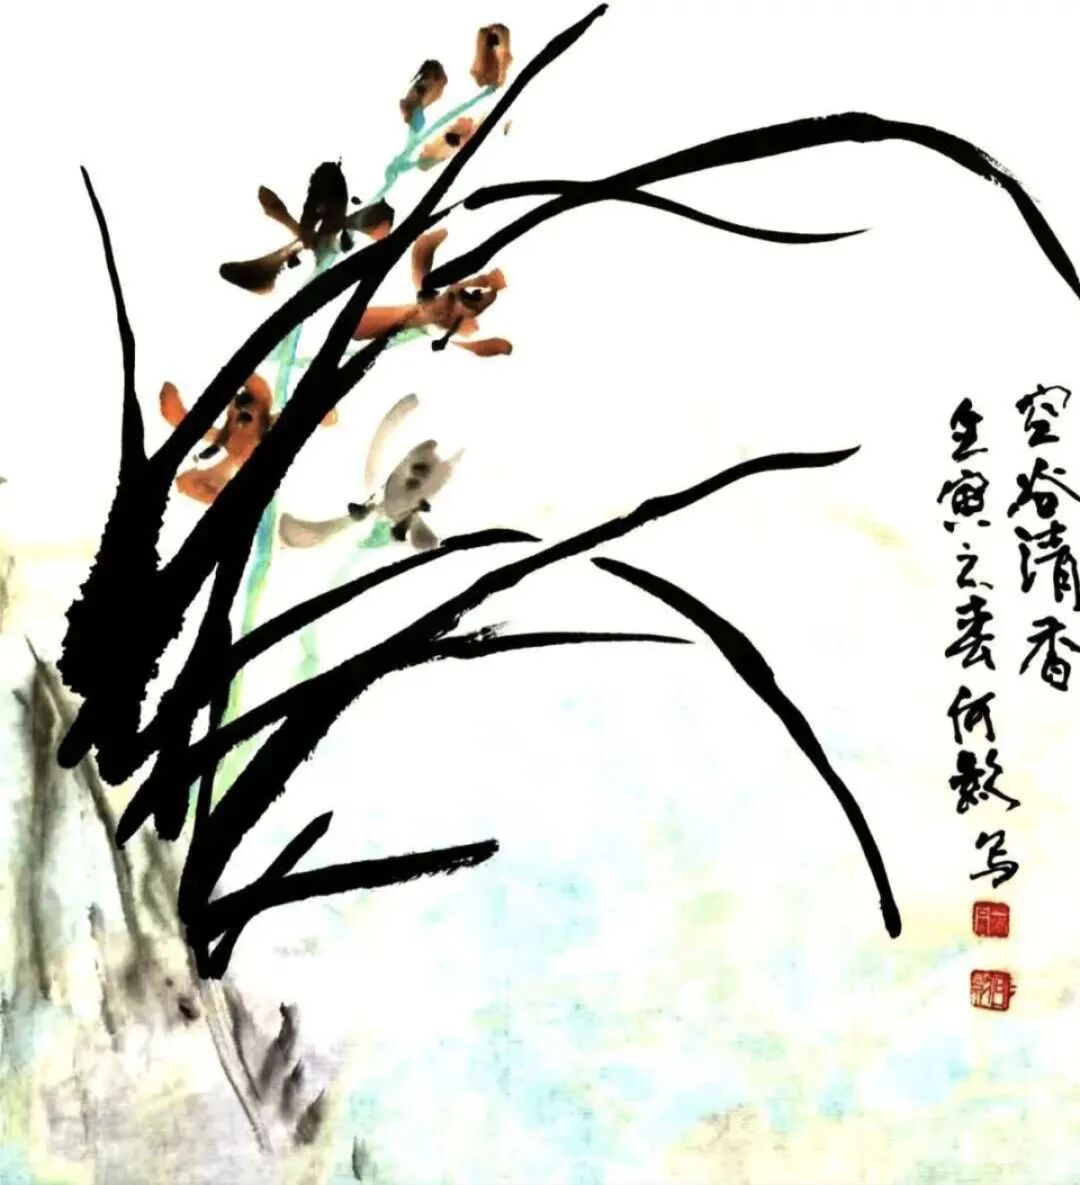 空谷清香
壬寅之春何毅写